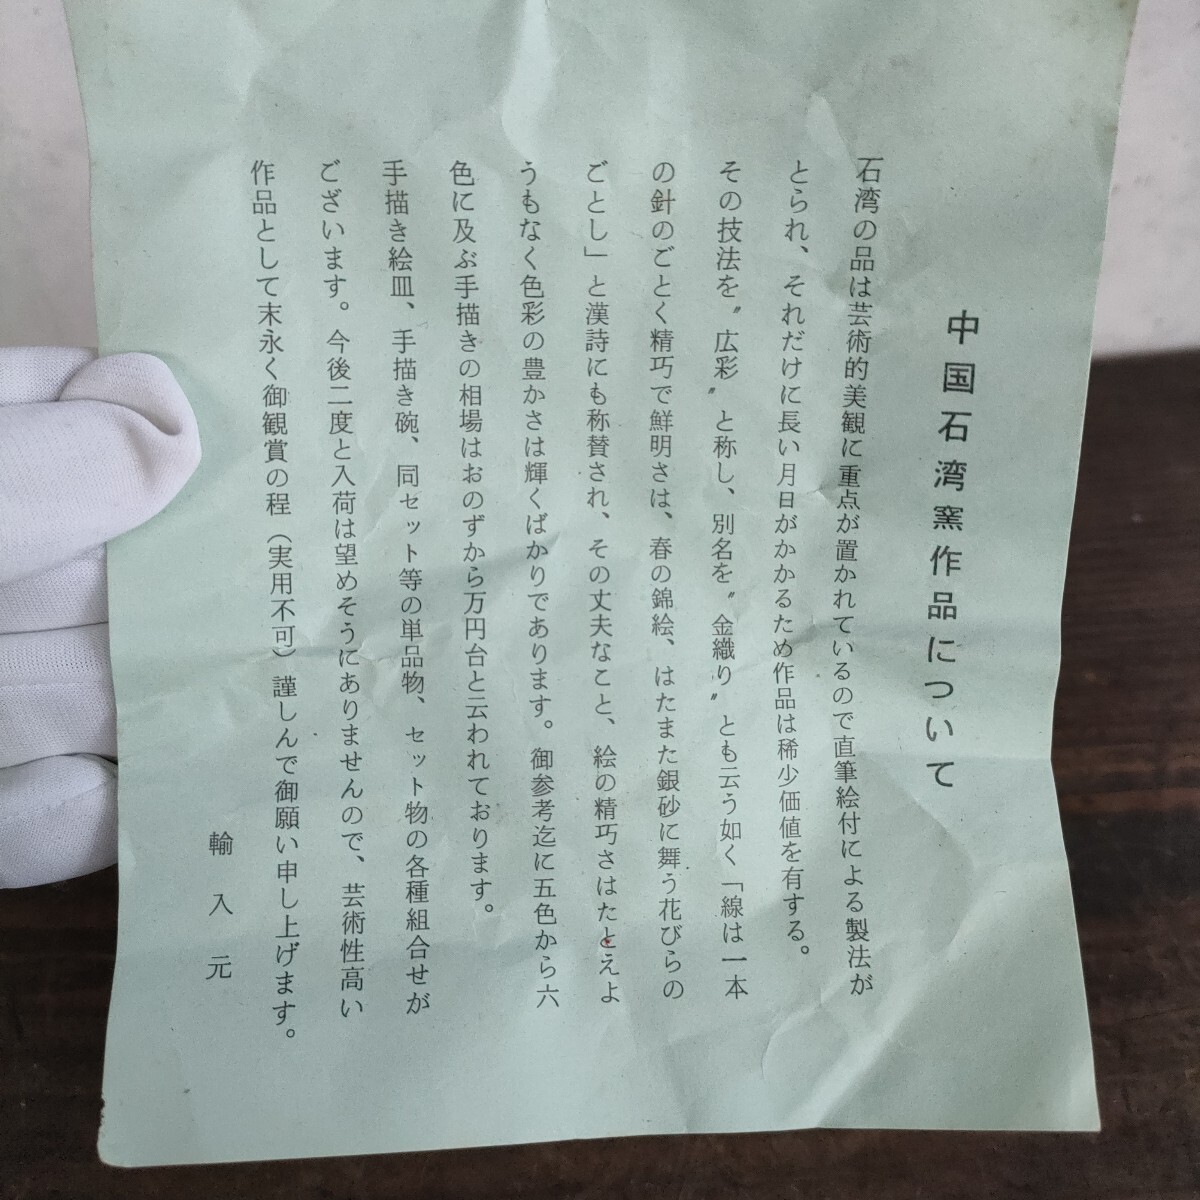 中国石湾窯作品について
石湾の品は芸術的美観に重点が置かれているので直筆絵付による製法が
とられ、それだけに長い月日がかかるため作品は稀少価値を有する。
その技法を〝広彩〟と称し、別名を〝金織り〟とも云う如く「線は一本
の針のごとく精巧で鮮明さは、春の錦絵、はたまた銀砂に舞う花びらの
ごとし」と漢詩にも称賛され、その丈夫なこと、絵の精巧さはたとえよ
うもなく色彩の豊かさは輝くばかりであります。御参考迄に五色から六
色に及ぶ手描きの相場はおのずから万円台と云われております。
手描き絵皿、手描き碗、同セット等の単品物、セット物の各種組合せが
ございます。今後二度と入荷は望めそうにありませんので、芸術性高い
作品として末永く御観賞の程（実用不可）謹しんで御願い申し上げます。
輸入元